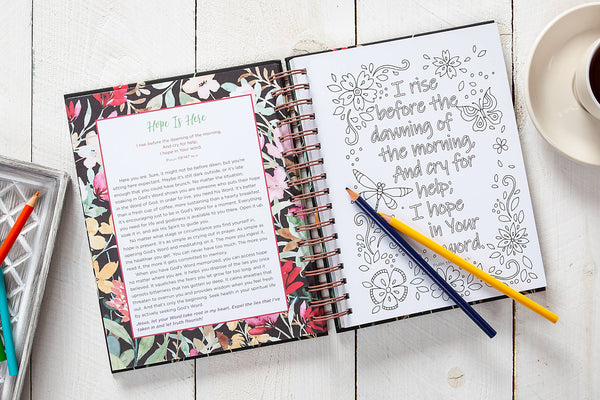 Hope Is Here
I rise before the dawning of the morning,
And cry for help;
I hope in Your word.
Psalm 119:147
Here you are. Sure, it might not be before dawn, but you're
sitting here expectantly. Maybe it's still dark outside, or it's late
in the evening and you could have found
soaking in God's word shows you are someone who puts their hope
in the Word of God. In order to live, you need his Word. It's better
than a fresh cup of coffee, more sustaining than a hearty breakfast.
It's encouraging just to be in God's Word, isn't it? Everything
you need for life and godliness is available to you there. Open
it up, dive in, and ask His Spirit to guide you.
No matter what stage or circumstance you find yourself in,
hope is present. It's as simple as crying out in prayer. As simple as
reading the Word of God and meditating on it. The more you ingest
the healthier you get. You can never have too much. The more you
read it, the more it gets committed to memory.
When you have God's Word memorized, you can access hope
no matter where you are. It helps you disprove the lies you have
believed. It squelches the lies that have gotten so deep. It calms and
uproots bitterness that have you
threaten to overrun you and provides wisdom when you feel
lost. And that's only the beginning. Seek health in your spiritual life
by actively seeking God's Word.
Jesus, let your Word take root in my heart. Expel the lies that I've
taken in and let truth flourish!
I rise
before the
dawning of
the morning,
And cry for
help;
I hope
in Your
word.